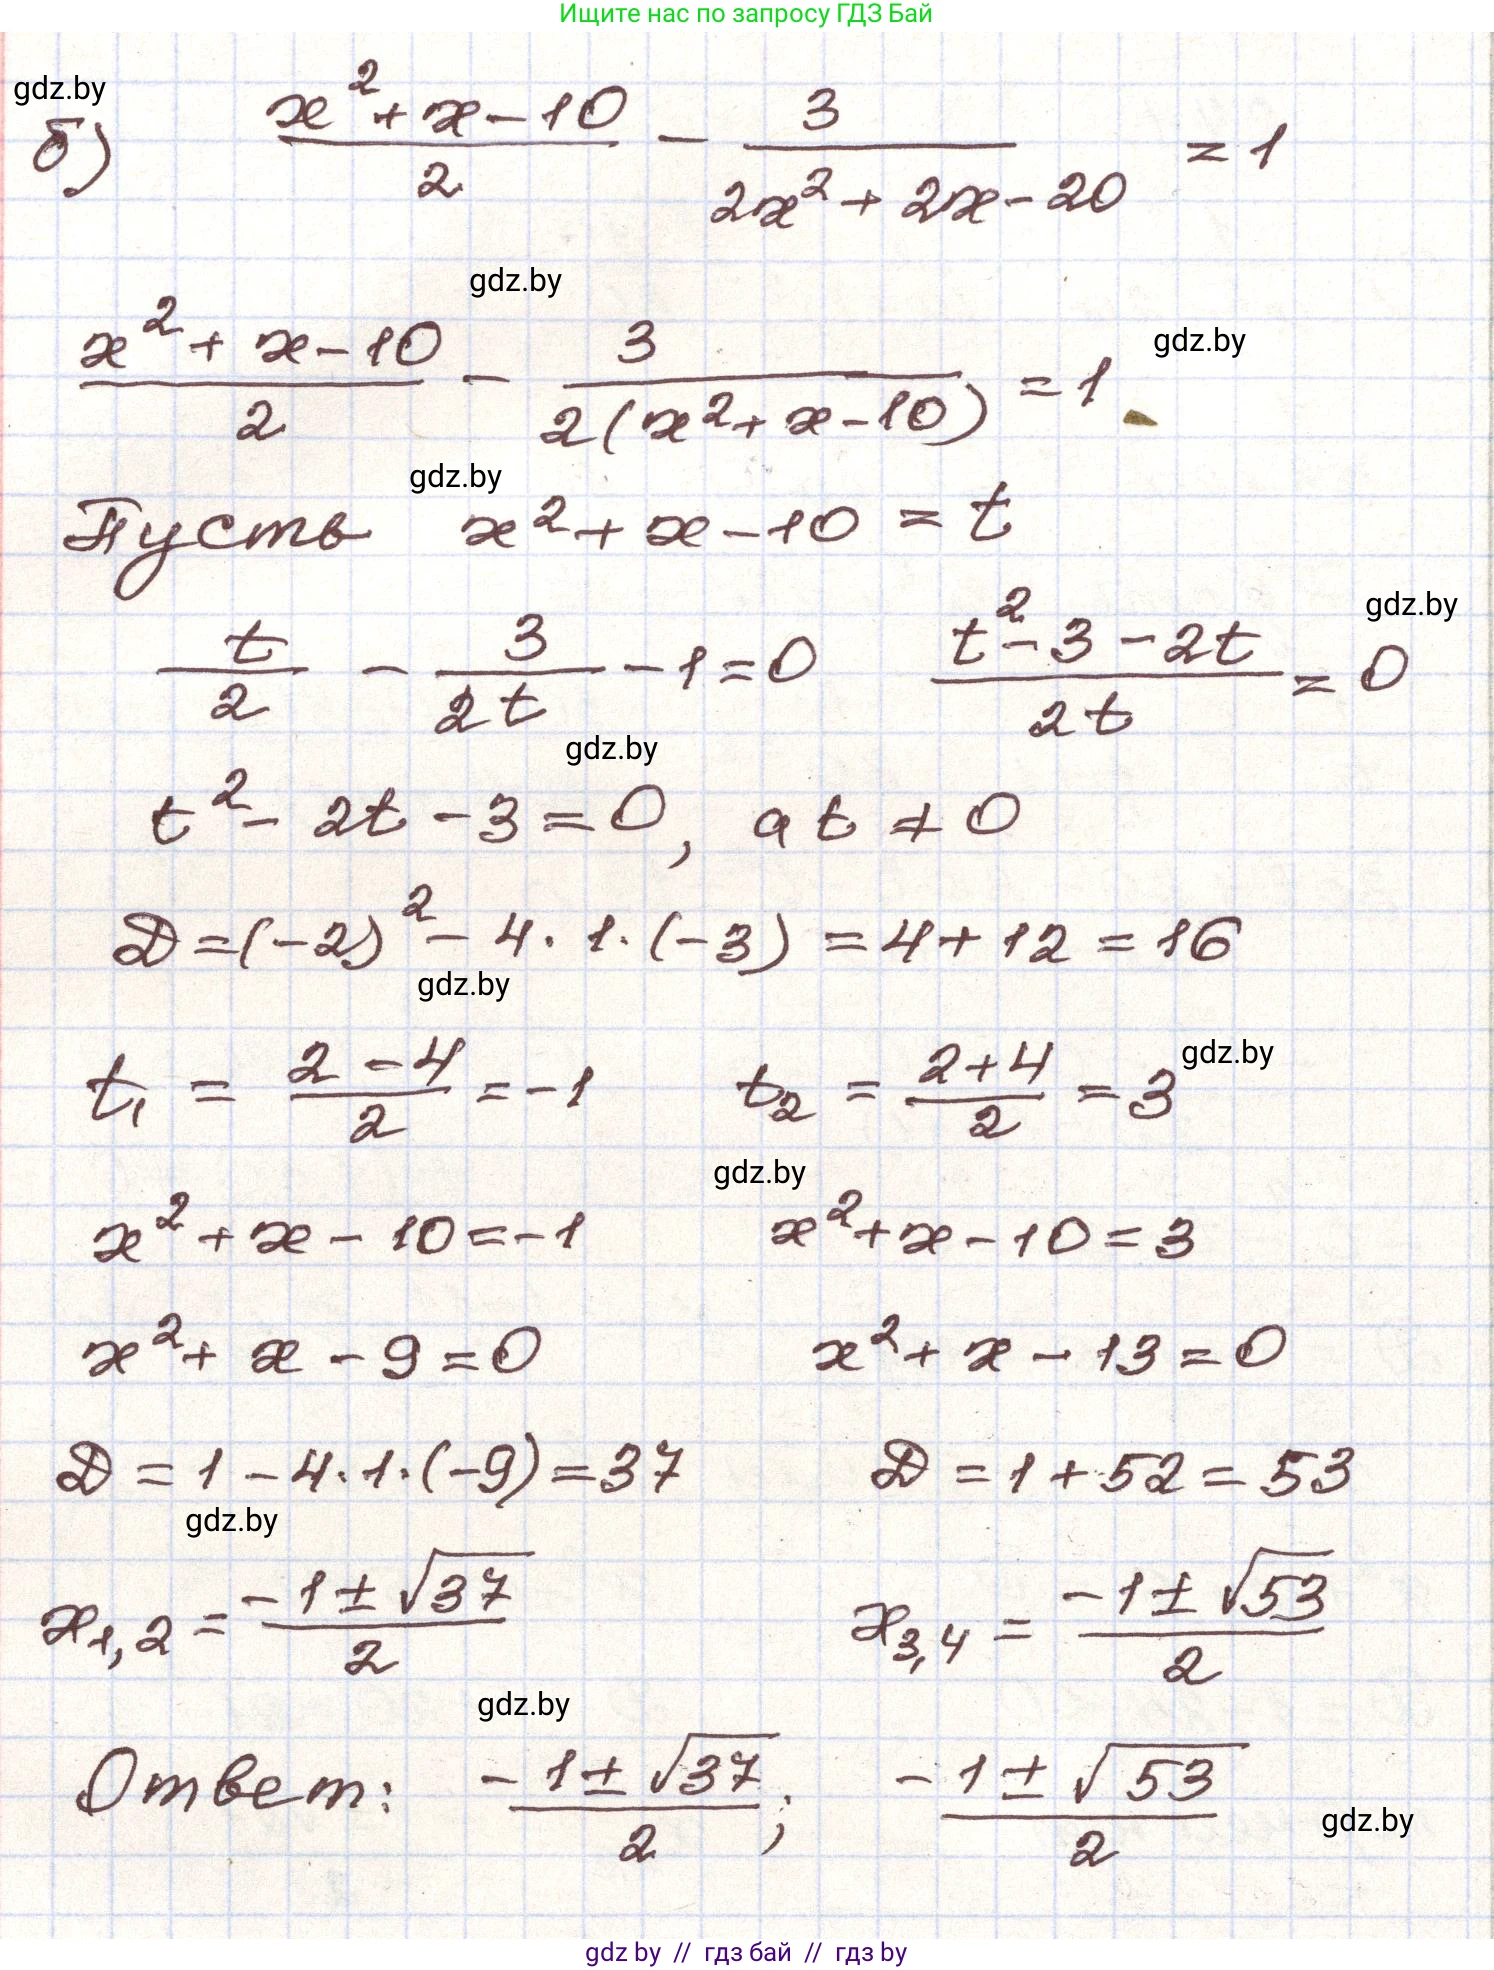 Ищите нас по запросу ГДЗ Бай
gdz.by
б) (x² + x - 10)/2 - 3/(2x² + 2x - 20) = 1
gdz.by
(x² + x - 10)/2 - 3/(2(x² + x - 10)) = 1
gdz.by
gdz.by
Пусть x² + x - 10 = t
gdz.by
t/2 - 3/(2t) - 1 = 0 (t² - 3 - 2t)/(2t) = 0
gdz.by
t² - 2t - 3 = 0, а t ≠ 0
D = (-2)² - 4 · 1 · (-3) = 4 + 12 = 16
gdz.by
t₁ = (2 - 4)/2 = -1 t₂ = (2 + 4)/2 = 3
gdz.by
gdz.by
x² + x - 10 = -1 x² + x - 10 = 3
x² + x - 9 = 0 x² + x - 13 = 0
D = 1 - 4 · 1 · (-9) = 37 D = 1 + 52 = 53
gdz.by
x₁,₂ = (-1 ± √37)/2 x₃,₄ = (-1 ± √53)/2
gdz.by
Ответ: (-1 ± √37)/2; (-1 ± √53)/2
gdz.by
gdz by // гдз бай // гдз by